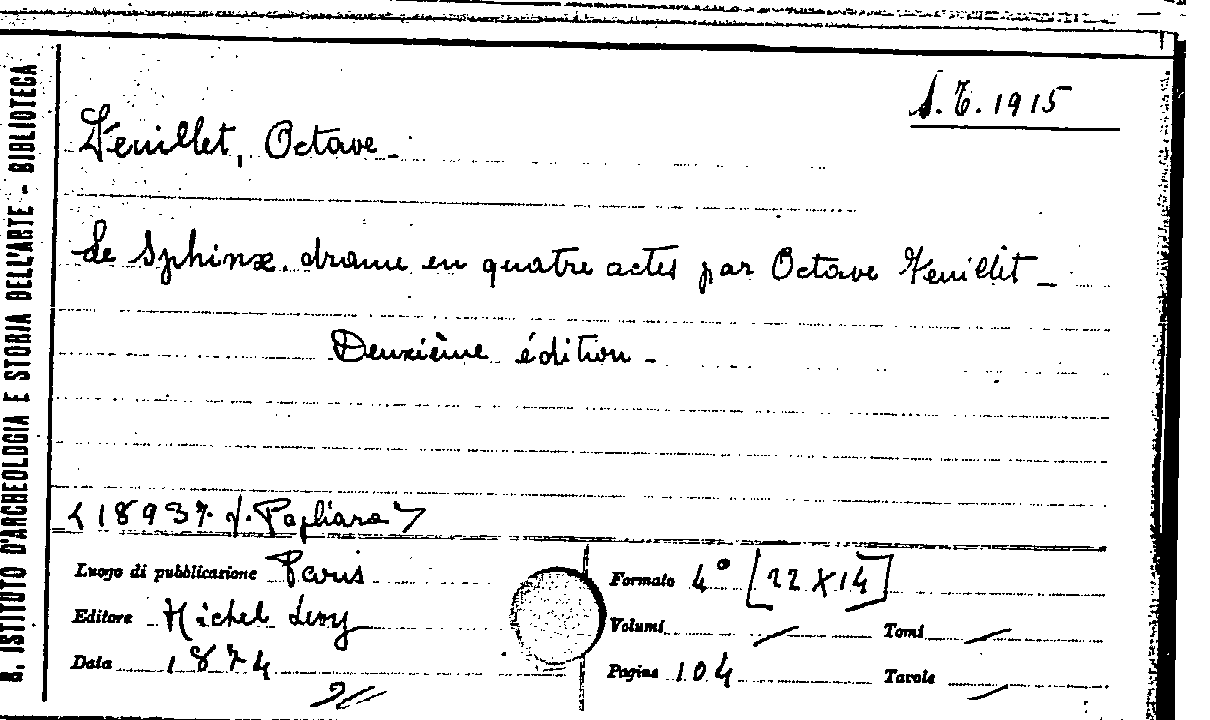 R. ISTITUTO D'ARCHEOLOGIA E STORIA DELL'ARTE - BIBLIOTECA
S. T. 1915
Feuillet, Octave
Le Sphinx. drame en quatre actes par Octave Feuillet -
Deuxième édition -
<18937 f. Pagliara>
Luogo di pubblicazione Paris
Editore Michel Levy
Data 1874
Formato 4° [22 X 14]
Volumi / Tomi /
Pagine 104 Tavole /